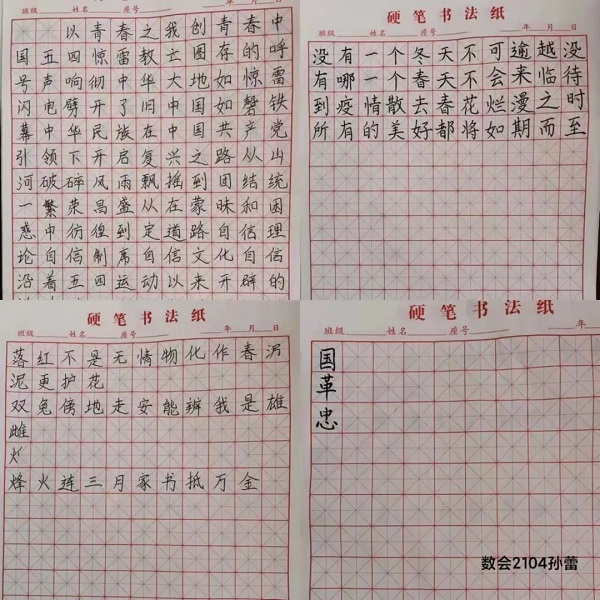 年 月 日
班级 姓名 座号
以青春之我创青春中
国五四惊雷救亡图存的呼
号声响彻中华大地如惊雷
闪电劈开了旧中国如磐铁
幕中华民族在中国共产党
引领下开启复兴之路从山
河破碎风雨飘摇到团结统
一繁荣昌盛从在蒙昧和困
惑中彷徨到定道路自信理
论自信制度自信文化自信
沿着五四运动以来开辟的
硬笔书法纸
班级 姓名 座号 年 月 日
没有一个冬天不可逾越没
有哪一个春天不会来临待
到疫情散去春花烂漫之时
所有的美好都将如期而至
硬笔书法纸
班级 姓名 座号 年 月 日
落红不是无情物化作春泥
泥更护花
双兔傍地走安能辨我是雄
雌
火
烽火连三月家书抵万金
硬笔书法纸
班级 姓名 座号 年
国
革
忠
数会2104孙蕾